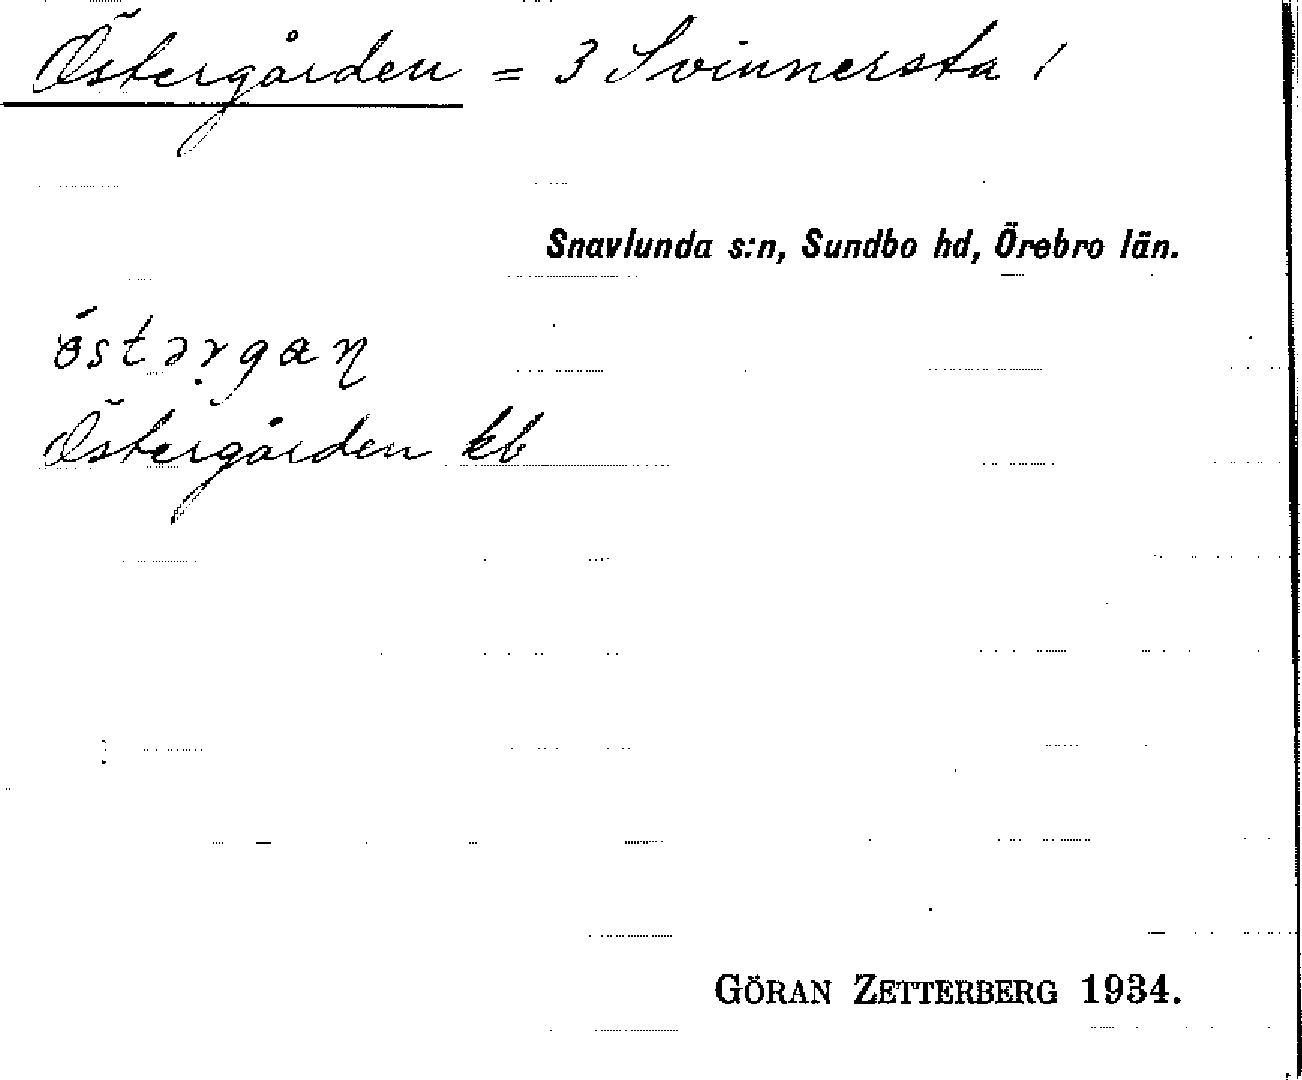 Östergården = 3 Svinnersta 1
Snavlunda s:n, Sundbo hd, Örebro län.
östərgaɳ
Östergården kb
GÖRAN ZETTERBERG 1934.